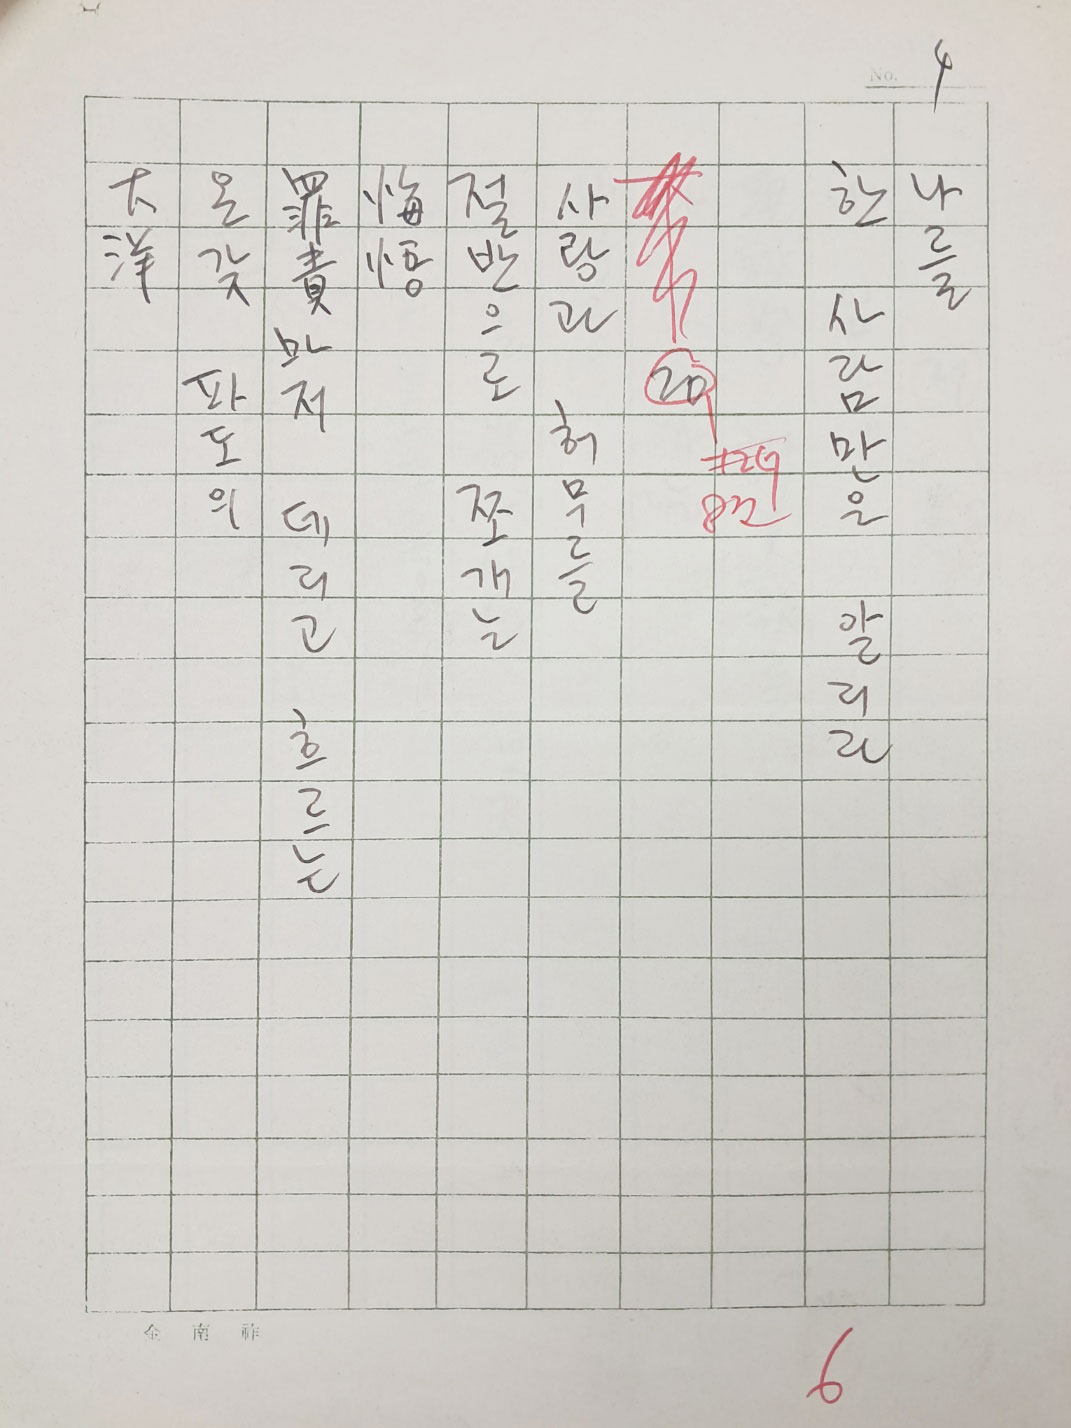 No. 4
나를
한 사람만은 알리라
20
#29
8포
사랑과 허물을
절반으로 쪼개는
悔悟
罪責마저 데리고 흐르는
온갖 파도의
大洋
金南祚
6